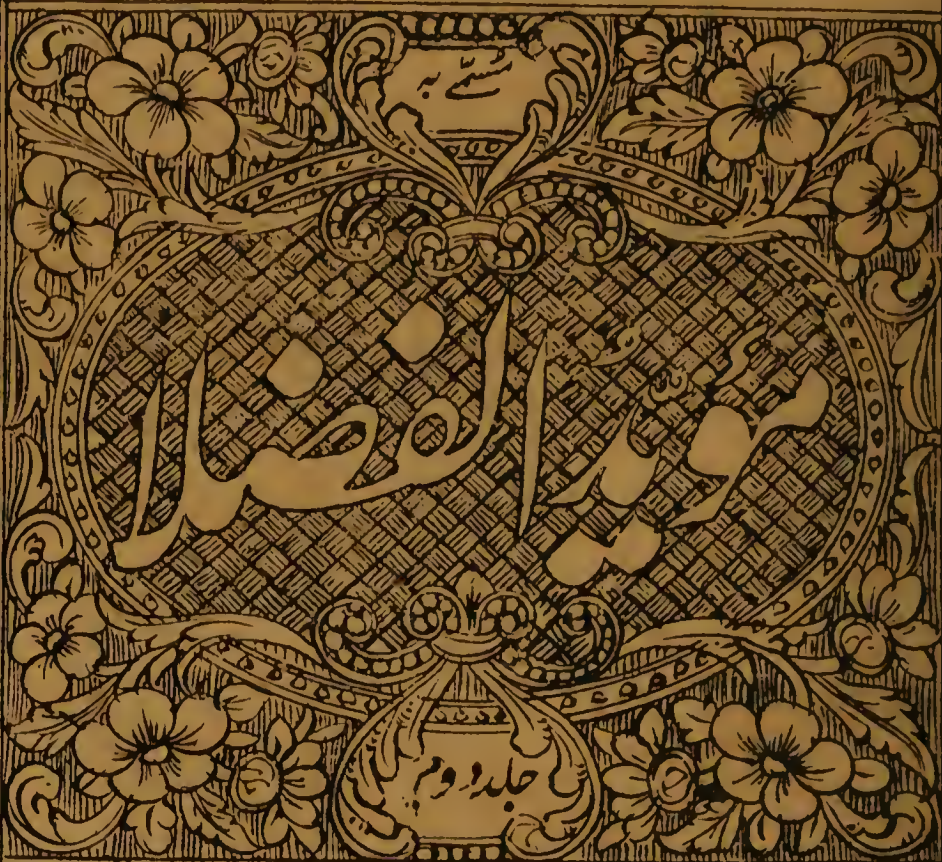 مسمّٰی به
مؤیّد الفضلا
جلد دوم